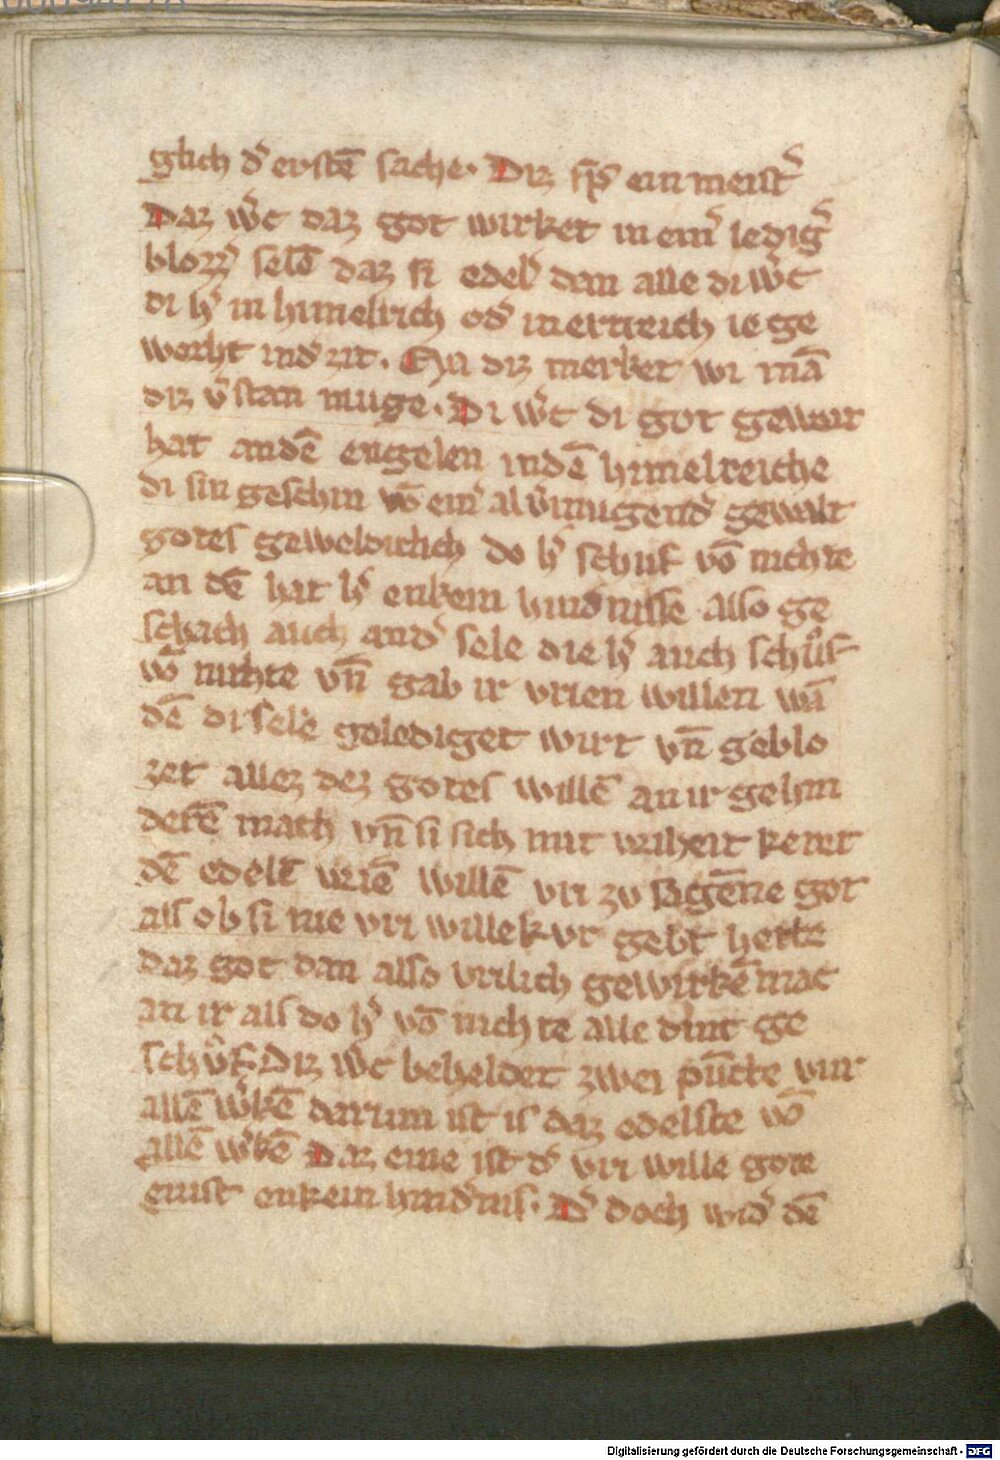 glich d͛ erstē sache. Diz sp̄ͥ ein meist͛
Daz w͛c daz got wirket in ein͛ ledig͛
blozz͛ selē daz si edel͛ dan alle di w͛c
di h͛ in himelrich od͛ in ertreich ie ge
worht in d͛ zit. Nu diz merket wi mā
diz v͛stan muge. Di w͛c di got gewurt
hat an dē engelen in dē himelreiche
di sin geschin vō ein͛ al v͛mugend͛ gewalt
gotes geweldichlich do h͛ schuf vō nichte
an dē hat h͛ enkein hind͛nisse also ge
schach auch an d͛ sele die h͛ auch schůf
vō nichte vn̄ gab ir vrien willen wā
dē di sele geledigiget wirt vn̄ geblo
zet allez dez gotes willē an ir gehin
derē mach vn̄ si sich mit vriheit keret
dē edelē vriē willē vri zu sagēne got
als ob si nie vri willekur gebt͛ hette
daz got dan also vrilich gewirkē mac
an ir als do h͛ vō nichte alle dīnt ge
schůf. Diz w͛c beheldet zwei pūcte vur
allē w͛kē darum ist is daz edelste vō
allē w͛kē Daz eine ist d͛ vri wille gote
enist enkein hind͛nis. D͛ doch wid͛ dē
Digitalisierung gefördert durch die Deutsche Forschungsgemeinschaft - DFG